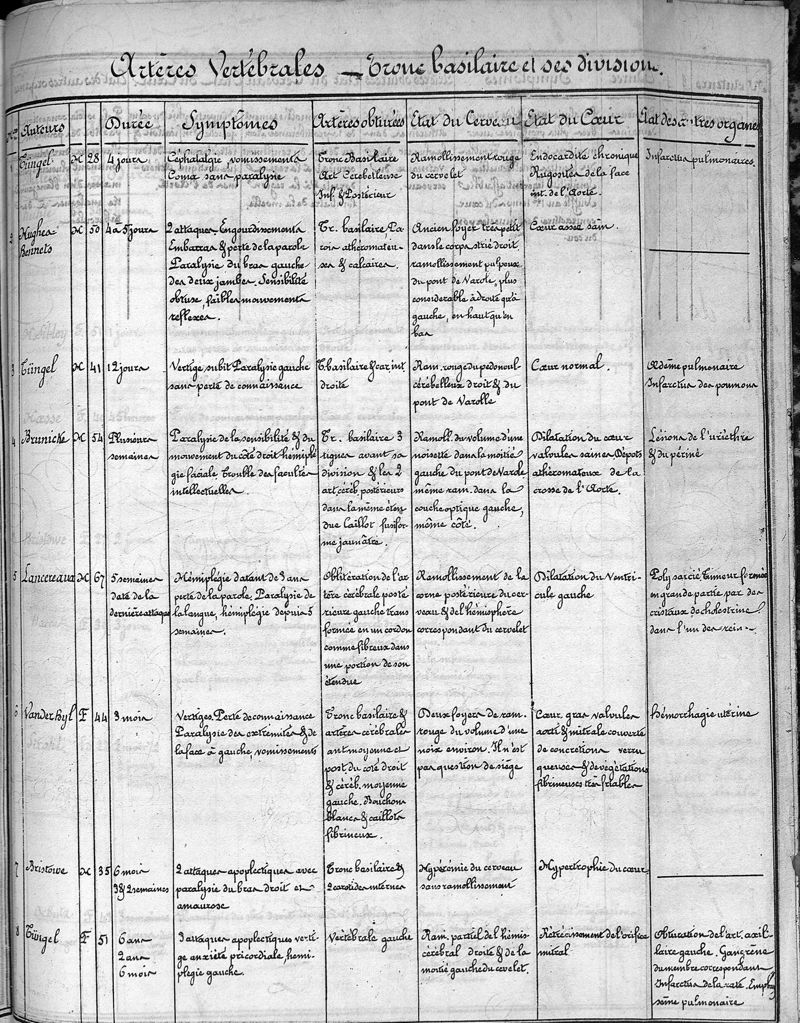 Artères Vertébrales — Tronc basilaire et ses division.
Auteurs Durée Symptômes Artères obturées Etat du Cerveau Etat du Cœur Etat des autres organes
Tüngel H 28 4 jours Céphalalgie, vomissements Tronc Basilaire Ramollissement rouge Endocardite chronique Infarctus pulmonaires.
Coma sans paralysie Art Cérébelleuse du cervelet Rugosités de la face
Inf & Postérieur int. de l'Aorte.
2 Hughes H 50 4 a 5 jours 2 attaques, Engourdissements Tr. basilaire Pa Ancien foyer très petit Cœur assez sain.
Bennets Embarras & perte de la parole rois athéromateu- dans le corps strié droit
Paralysie du bras gauche ses & calcaires. ramollissement pulpeux
des deux jambes. Sensibilité du pont de Varole, plus
obtuse, faibles mouvements considérable à droite qu'à
reflexes. gauche, en haut qu'en
bas
3 Tüngel H 41 12 jours Vertige subit Paralysie gauche T. basilaire & car. int Ram. rouge du pedoncul Cœur normal. Œdème pulmonaire
sans perte de connaissance droite cérébelleux droit & du Infarctus des poumons
pont de Varolle
4 Brunicke H 54 Plusieurs Paralysie de la sensibilité & du Tr. basilaire 3 Ramoll. du volume d'une Dilatation du cœur Lésions de l'urèthre
semaines mouvement du côté droit hémiplé lignes avant sa noisette dans la moitié valvules saines Dépots & du périné
gie faciale. Trouble des facultés division & les 2 gauche du pont de Varole athéromateux de la
intellectuelles. art. céréb. postérieurs même ram. dans la crosse de l'Aorte.
dans la même éten couche optique gauche,
due Caillot fusifor même côté.
me jaunâtre.
5 Lancereaux H 67 5 semaines Hémiplégie datant de 3 ans Oblitération de l'ar Ramollissement de la Dilatation du Ventri- Poly sarcie tumeur formée
date de la perte de la parole, Paralysie de tère cérébrale posté corne postérieure du cer cule gauche en grande partie par des
dernière attaque la langue, hémiplégie depuis 5 rieure gauche trans veau & de l'hémisphère cristaux de cholestrine
semaines. formée en un cordon correspondant du cervelet dans l'un des reins.
comme fibreux dans
une portion de son
étendue
6 Vanderbyl F 44 3 mois Vertiges, Perte de connaissance Tronc basilaire & Deux foyers de ram. Cœur gras valvules Hémorrhagie utérine
Paralysie des extremités & de artères cérébrales rouge du volume d'une aorti & mitrale couverte
la face à gauche, vomissements ant moyenne et noix environ. Il n'est de concretions verru
post. du côté droit pas question de siège queuses & de végétations
& céréb. moyenne fibrineuses très friables
gauche. Bouchons
blancs & caillots
fibrineux.
7 Bristowe H 35 6 mois 2 attaques apoplectiques avec Tronc basilaire & Hyperémie du cerveau Hypertrophie du cœur
3 & 2 semaines paralysie du bras droit et 2 carotides internes sans ramollissement
amaurose
8 Tüngel F 51 6 ans 3 attaques apoplectiques verti- Vertébrale gauche Ram. partiel de l'hémis Rétrécissement de l'orifice Obturation de l'art. axil-
2 ans ge anxiété précordiale, hemi- cérébral droite & de la mitral laire gauche. Gangrène
6 mois plegie gauche. moitié gauche du cevelet. du membre correspondant
Infarctus de la rate. Emphy
sème pulmonaire